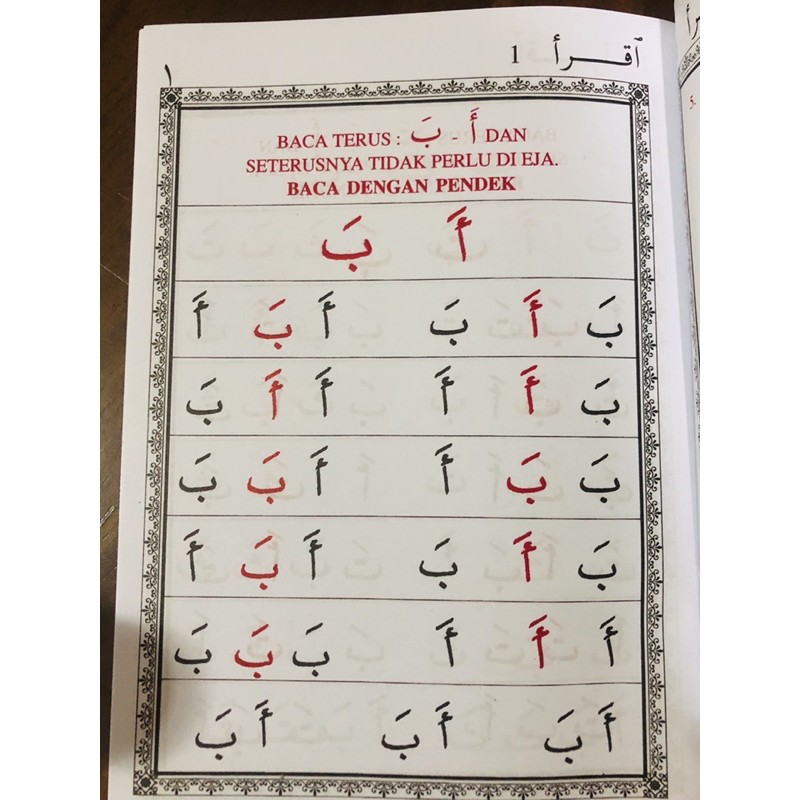 ٱقـــرأ 1
١
BACA TERUS : أَ - بَ DAN
SETERUSNYA TIDAK PERLU DI EJA.
BACA DENGAN PENDEK
أَ بَ
بَ أَ بَ أَ بَ أَ
بَ أَ أَ أَ أَ بَ
بَ بَ أَ أَ بَ بَ
بَ أَ بَ أَ بَ أَ
أَ أَ أَ بَ بَ بَ
أَ بَ أَ بَ أَ بَ
5.